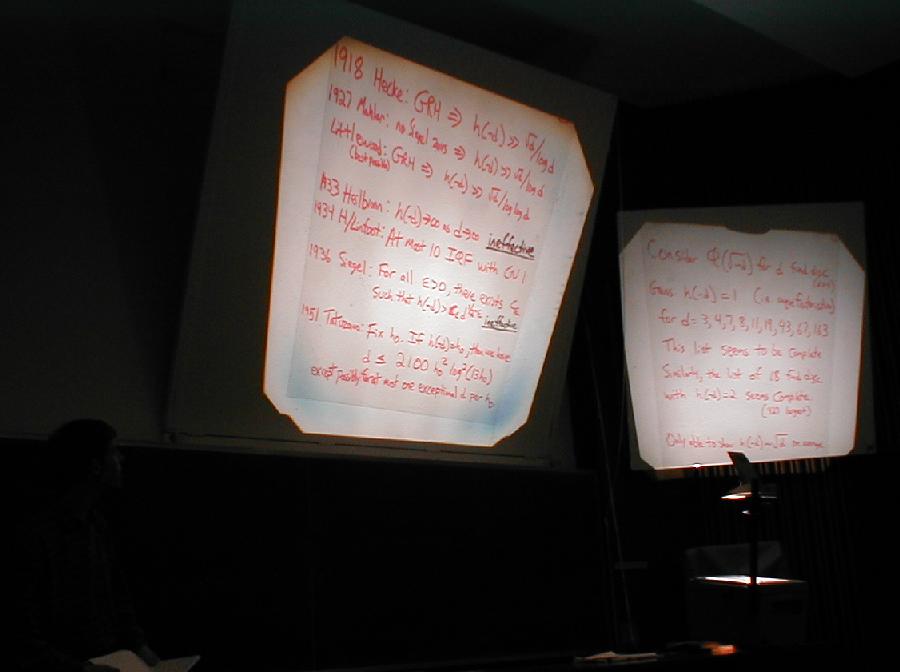 1918 Hecke: GRH ⇒ h(-d) >> √d/log d
1927 Mahler: no Siegel zeros ⇒ h(-d) >> √d/log d
Littlewood: GRH ⇒ h(-d) >> √d/loglog d
(best possible)
1933 Heilbronn: h(-d)→∞ as d→∞ ineffective
1934 H/Linfoot: At most 10 IQF with CN 1
1936 Siegel: For all ε>0, there exists
such that h(-d)> ineffective
1951 Tatuzawa: Fix h₀. If h(-d)=h₀, then we have
d ≤ 2100 h₀² log²(13h₀)
except possibly for at most one exceptional d per h₀
Consider Q(√-d) for d fund disc
Gauss h(-d) = 1 (i.e. unique factorisation)
for d = 3,4,7,8,11,19,43,67,163
This list seems to be complete
Similarly, the list of 18 fund disc
with h(-d)=2 seems complete
(427 largest)
Only able to show h(-d)~√d on average